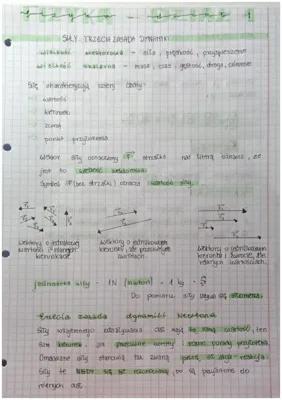 fizyka - dział 1
SIŁY. TRZECIA ZASADA DYNAMIKI
wielkość wektorowa - siła, prędkość, przyspieszenie
wielkość skalarna - masa, czas, gęstość, droga,
Siłę charakteryzują cztery cechy:
wartość
kierunek
zwrot
punkt przyłożenia
Wektor siły oznaczamy F, strzałka nad literą oznacza, że
jest to wielkość wektorowa.
Symbol F (bez strzałki) oznacza wartość siły.
Wektory o jednakowej
wartości i różnych
kierunkach
Wektory o jednakowym
kierunku, ale przeciwnych
zwrotach.
Wektory o jednakowym
kierunku i zwrocie, ale
różnych wartościach.
jednostka siły - 1N (niuton) = 1 kg ·
Do pomiaru siły służy siłomierz.
Trzecia zasada dynamiki Newtona
Siły wzajemnego oddziaływania ciał mają tę samą wartość, ten
sam kierunek, przeciwne zwroty i różne punkty przyłożenia.
Omawiane siły stanowią tak zwaną parę akcja reakcja
Siły te NIGDY SIĘ NIE RÓWNOWAŻĄ, bo są przyłożone do
różnych ciał.